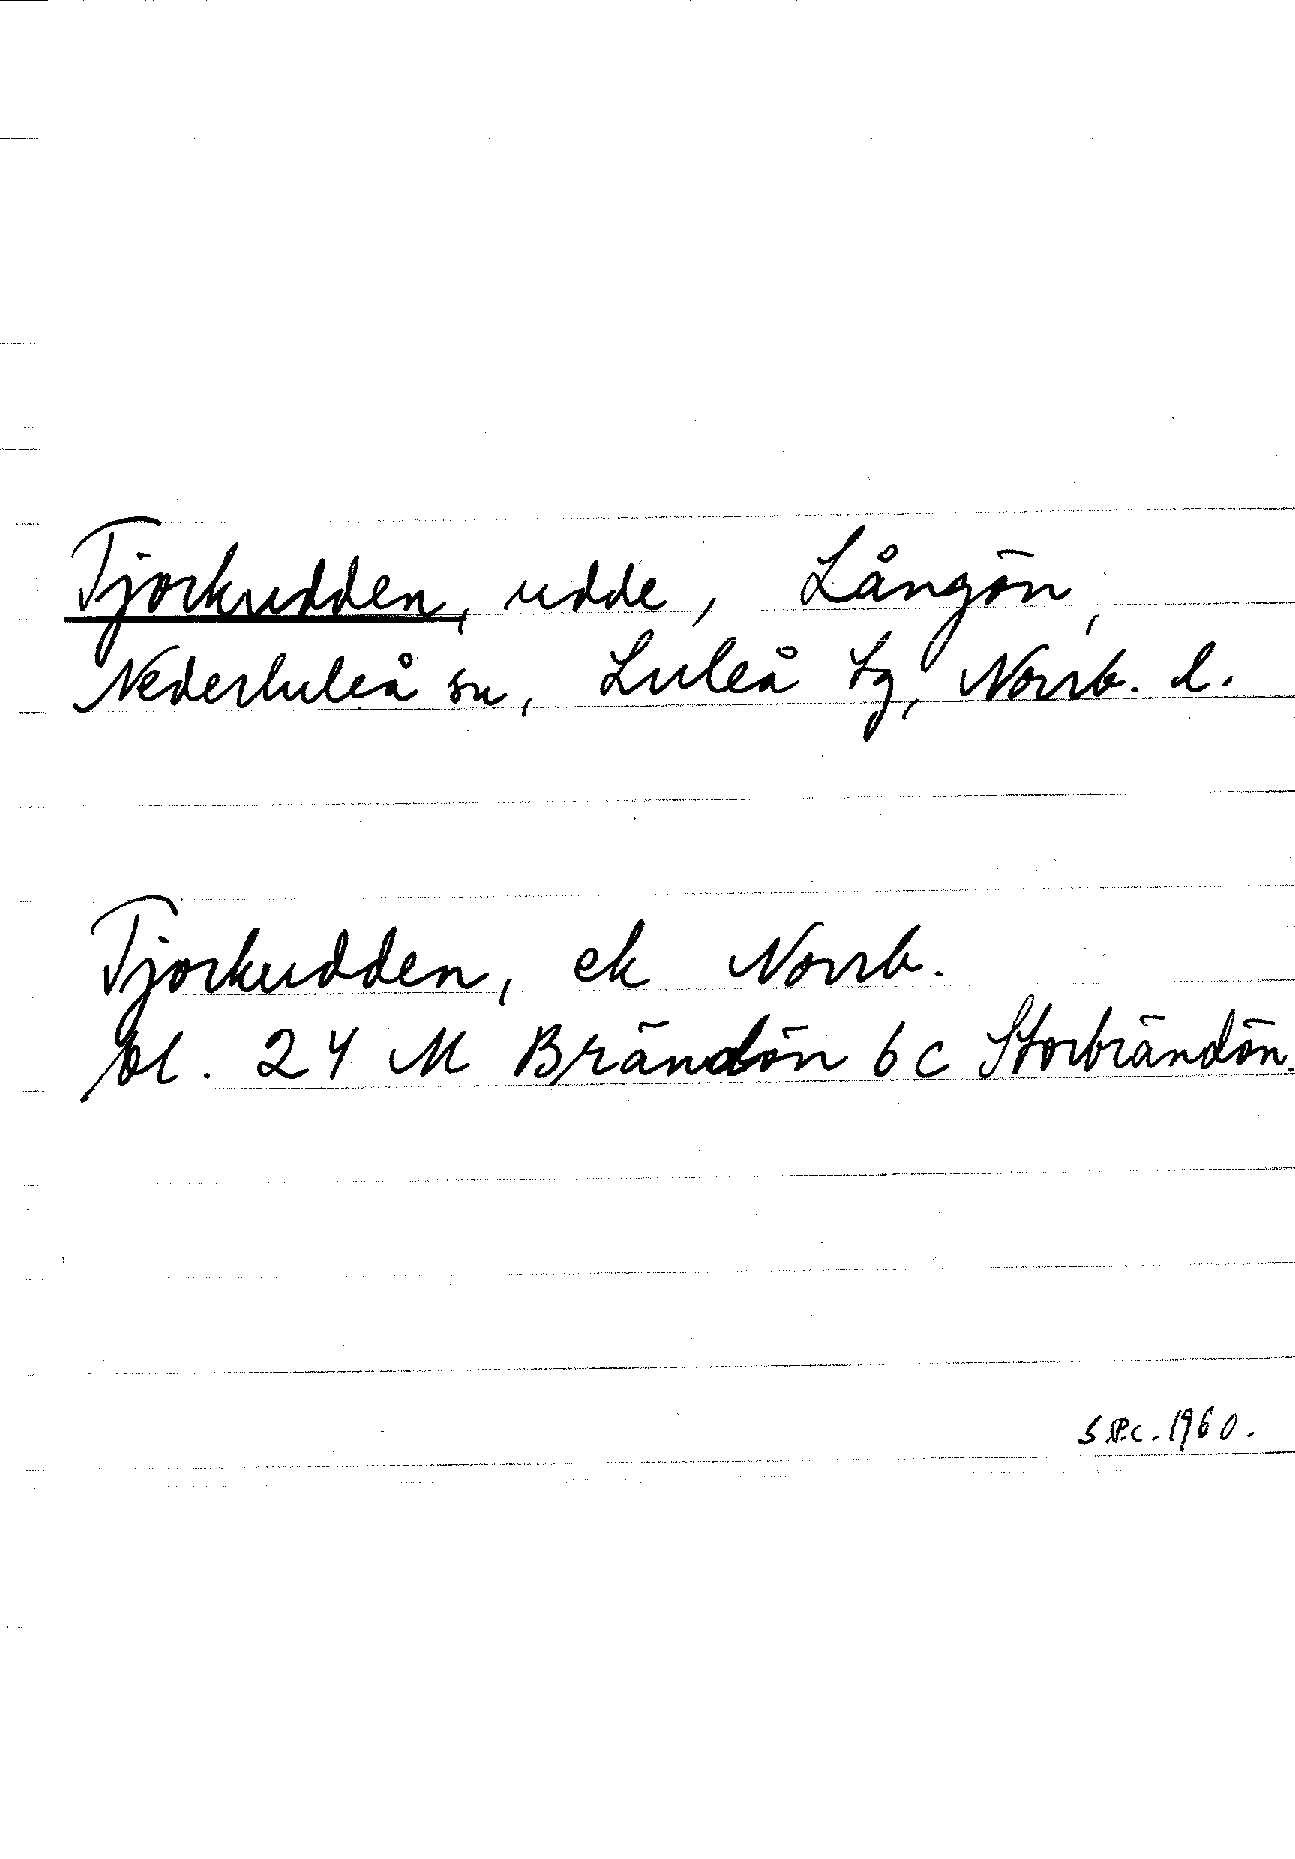 Tjorkudden, udde, Långön,
Nederluleå sn, Luleå tg, Norrb. l.
Tjorkudden, ek Norrb.
bl. 24 M Brändön 6 c Storbrändön.
1960.